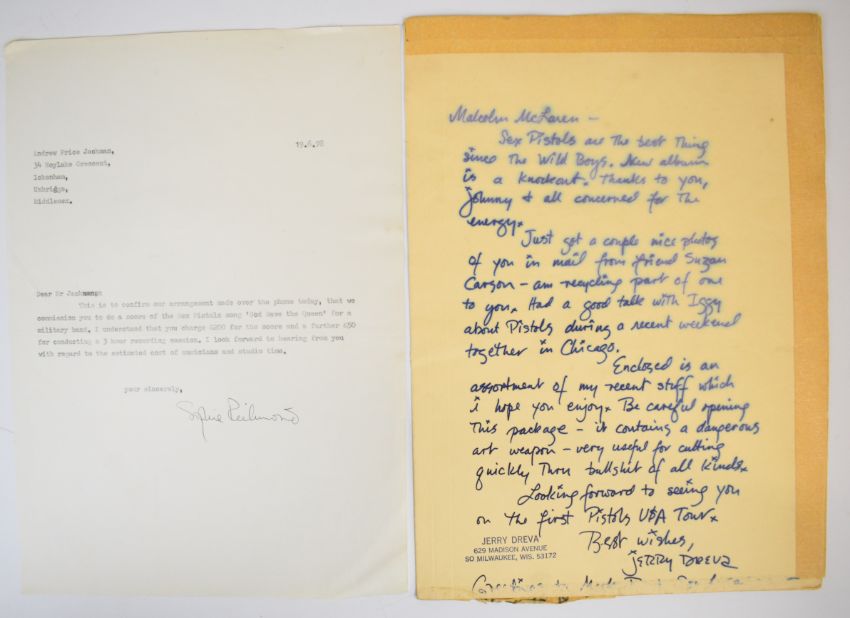 19.6.78
Andrew Price Jackman,
34 Hoylake Crescent,
Ickenham,
Uxbridge,
Middlesex.
Dear Mr Jackman
This is to confirm our arrangement made over the phone today, that we
commission you to do a score of the Sex Pistols song 'God Save the Queen' for a
military band. I understand that you charge £200 for the score and a further £50
for conducting a 3 hour recording session. I look forward to hearing from you
with regard to the estimated cost of musicians and studio time.
your sincerely,
Sophie Richmond
Malcolm McLaren –
Sex Pistols are the best thing
since the Wild Boys. New album
is a knockout. Thanks to you,
Johnny & all concerned for the
energy.
Just got a couple nice photos
of you in mail from friend Suzan
Carson – am recycling part of one
to you. Had a good talk with Iggy
about Pistols during a recent weekend
together in Chicago.
Enclosed is an
assortment of my recent stuff which
i hope you enjoy. Be careful opening
this package – it contains a dangerous
art weapon – very useful for cutting
quickly thru bullshit of all kinds.
Looking forward to seeing you
on the first Pistols USA Tour.
Best wishes,
JERRY DREVA
JERRY DREVA
629 MADISON AVENUE
SO MILWAUKEE, WIS. 53172